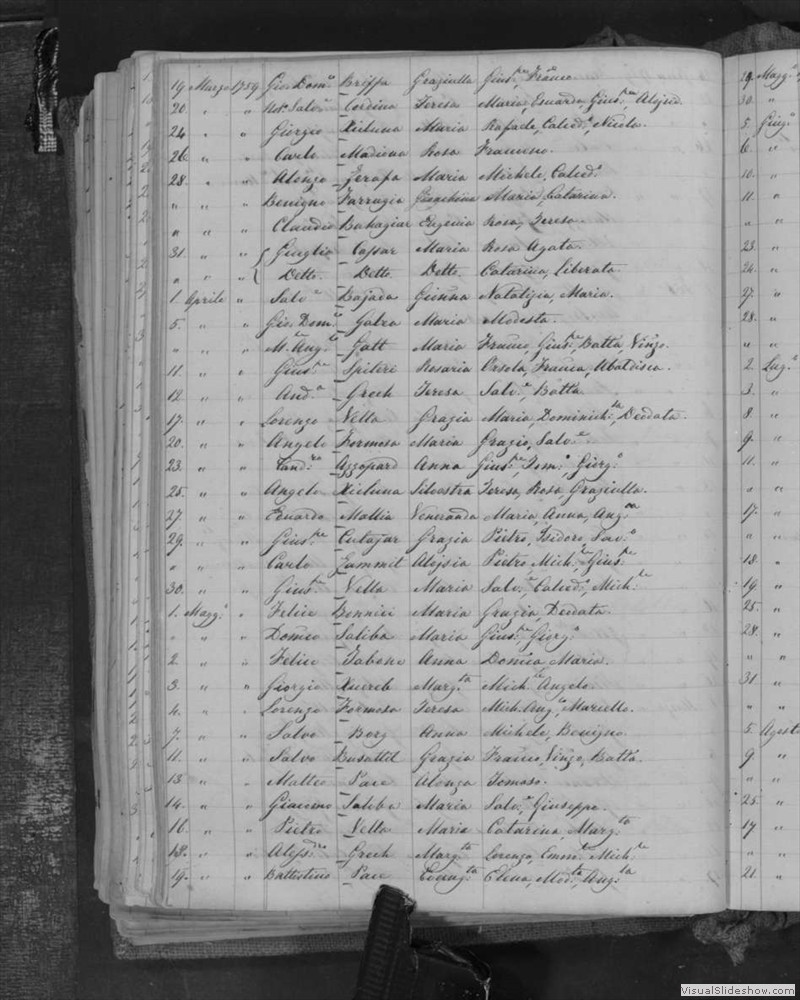 19 Marzo 1759 Gio: Domo Briffa Graziulla Giusre, Franco
20. " " Not: Salve Cordina Teresa Maria, Eduardo, Giusre Aloysio
24. " " Giorgio Xicluna Maria Rafaele, Calcedo, Nicola.
26. " " Carlo Madiona Rosa Francesco.
28. " " Alonzo Zerafa Maria Michele, Calcedo
" " " Benigno Farrugia Gioachina Maria, Catarina.
" " " Claudio Buhagiar Eugenia Rosa, Teresa.
31. " " Giuglio Cassar Maria Rosa Agata.
" " " Detto Detto Detto Catarina, Liberata.
1. Aprile " Salve Bajada Gionna Natalizia, Maria.
5. " " Gio: Domo Galea Maria Modesta.
" " " M: Ango Gatt Maria Franco, Giusre, Batta, Vinzo.
11. " " Giusre Spiteri Rosaria Orsola, Franca, Ubaldisca.
12. " " Anda Grech Teresa Salve, Batta
17. " " Lorenzo Vella Grazia Maria, Dominichta, Deodata.
20. " " Angelo Formosa Maria Grazio, Salve
23. " " Azzopard Anna Giusre, Tomo, Giorgo
25. " " Angelo Xicluna Silvestra Teresa, Rosa, Graziulla.
27. " " Eduardo Mallia Veneranda Maria, Anna, Angca
29. " " Giusre Cutajar Grazia Pietro, Isidoro, Pao
" " " Carlo Zammit Aloysia Pietro, Miche, Giusre
30. " " Giusre Vella Maria Salve, Calcedo, Michle
1. Maggo " Felice Bonnici Maria Grazia, Deodata.
" " " Domco Saliba Maria Giusre, Giorgo
2. " " Felice Tabone Anna Domca, Maria.
3. " " Giorgio Xuereb Margta Michle Angelo.
4. " " Lorenzo Formosa Teresa Mich: Ango, Marcello.
7. " " Salvo Borg Anna Michele, Benigno.
11. " " Salvo Busuttil Grazia Franco, Vinzo, Batta.
13 " " Matteo Pace Alonza Tomaso.
14. " " Giacomo Saliba Maria Salve, Giuseppe.
16. " " Pietro Vella Maria Catarina, Margta
18. " " Alessdro Grech Margta Lorenzo, Emmle, Michle
19. " " Battistino Pace Elena, Modta, Angta
29. Maggo
30. "
5. Giugo
6. "
10. "
11. "
" "
23. "
24. "
27. "
28. "
" "
2. Lugo
3. "
8. "
9. "
11. "
" "
17. "
" "
18. "
19. "
25. "
28. "
" "
31. "
" "
5. Agosto
9. "
" "
25. "
17 "
" "
21. "
VisualSlideshow.com